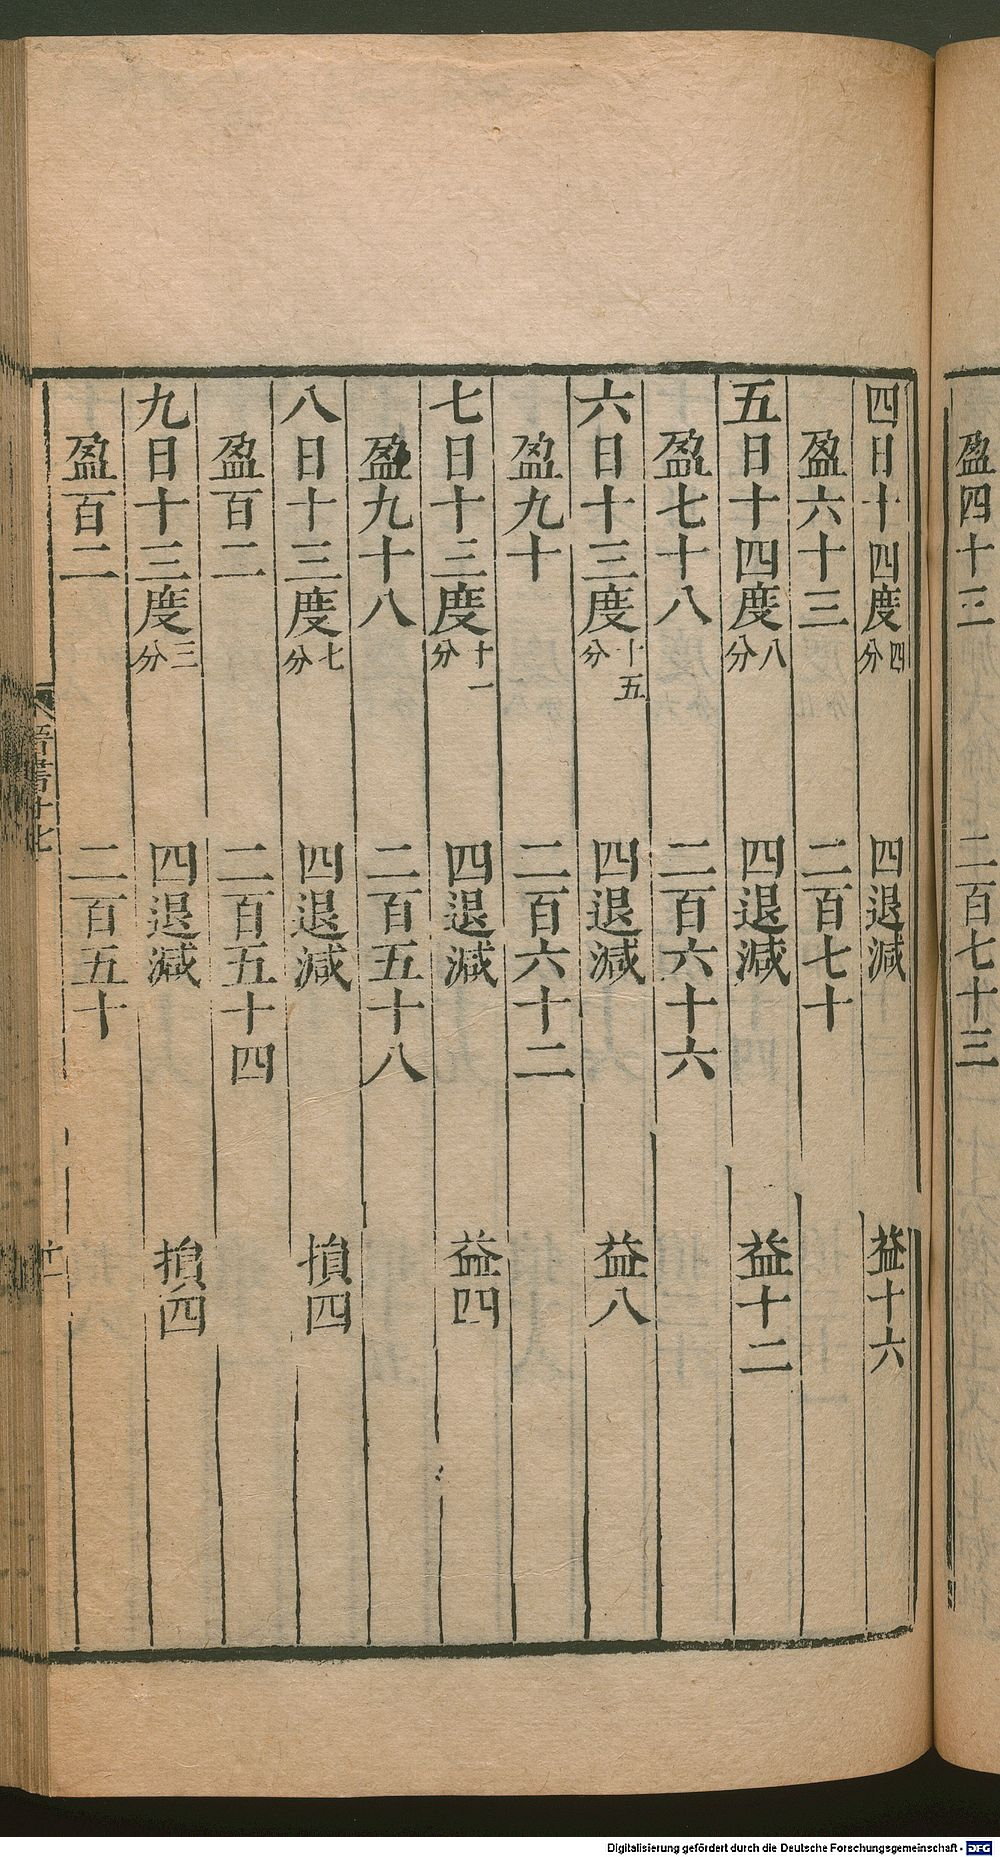 盈四十三　二百七十三
四日十四度四分　四退減　益十六
盈六十三　二百七十
五日十四度八分　四退減　益十二
盈七十八　二百六十六
六日十三度十五分　四退減　益八
盈九十　二百六十二
七日十三度十一分　四退減　益四
盈九十八　二百五十八
八日十三度七分　四退減　損四
盈百二　二百五十四
九日十三度三分　四退減　損四
盈百二　二百五十
晉書十七
Digitalisierung gefördert durch die Deutsche Forschungsgemeinschaft - DFG